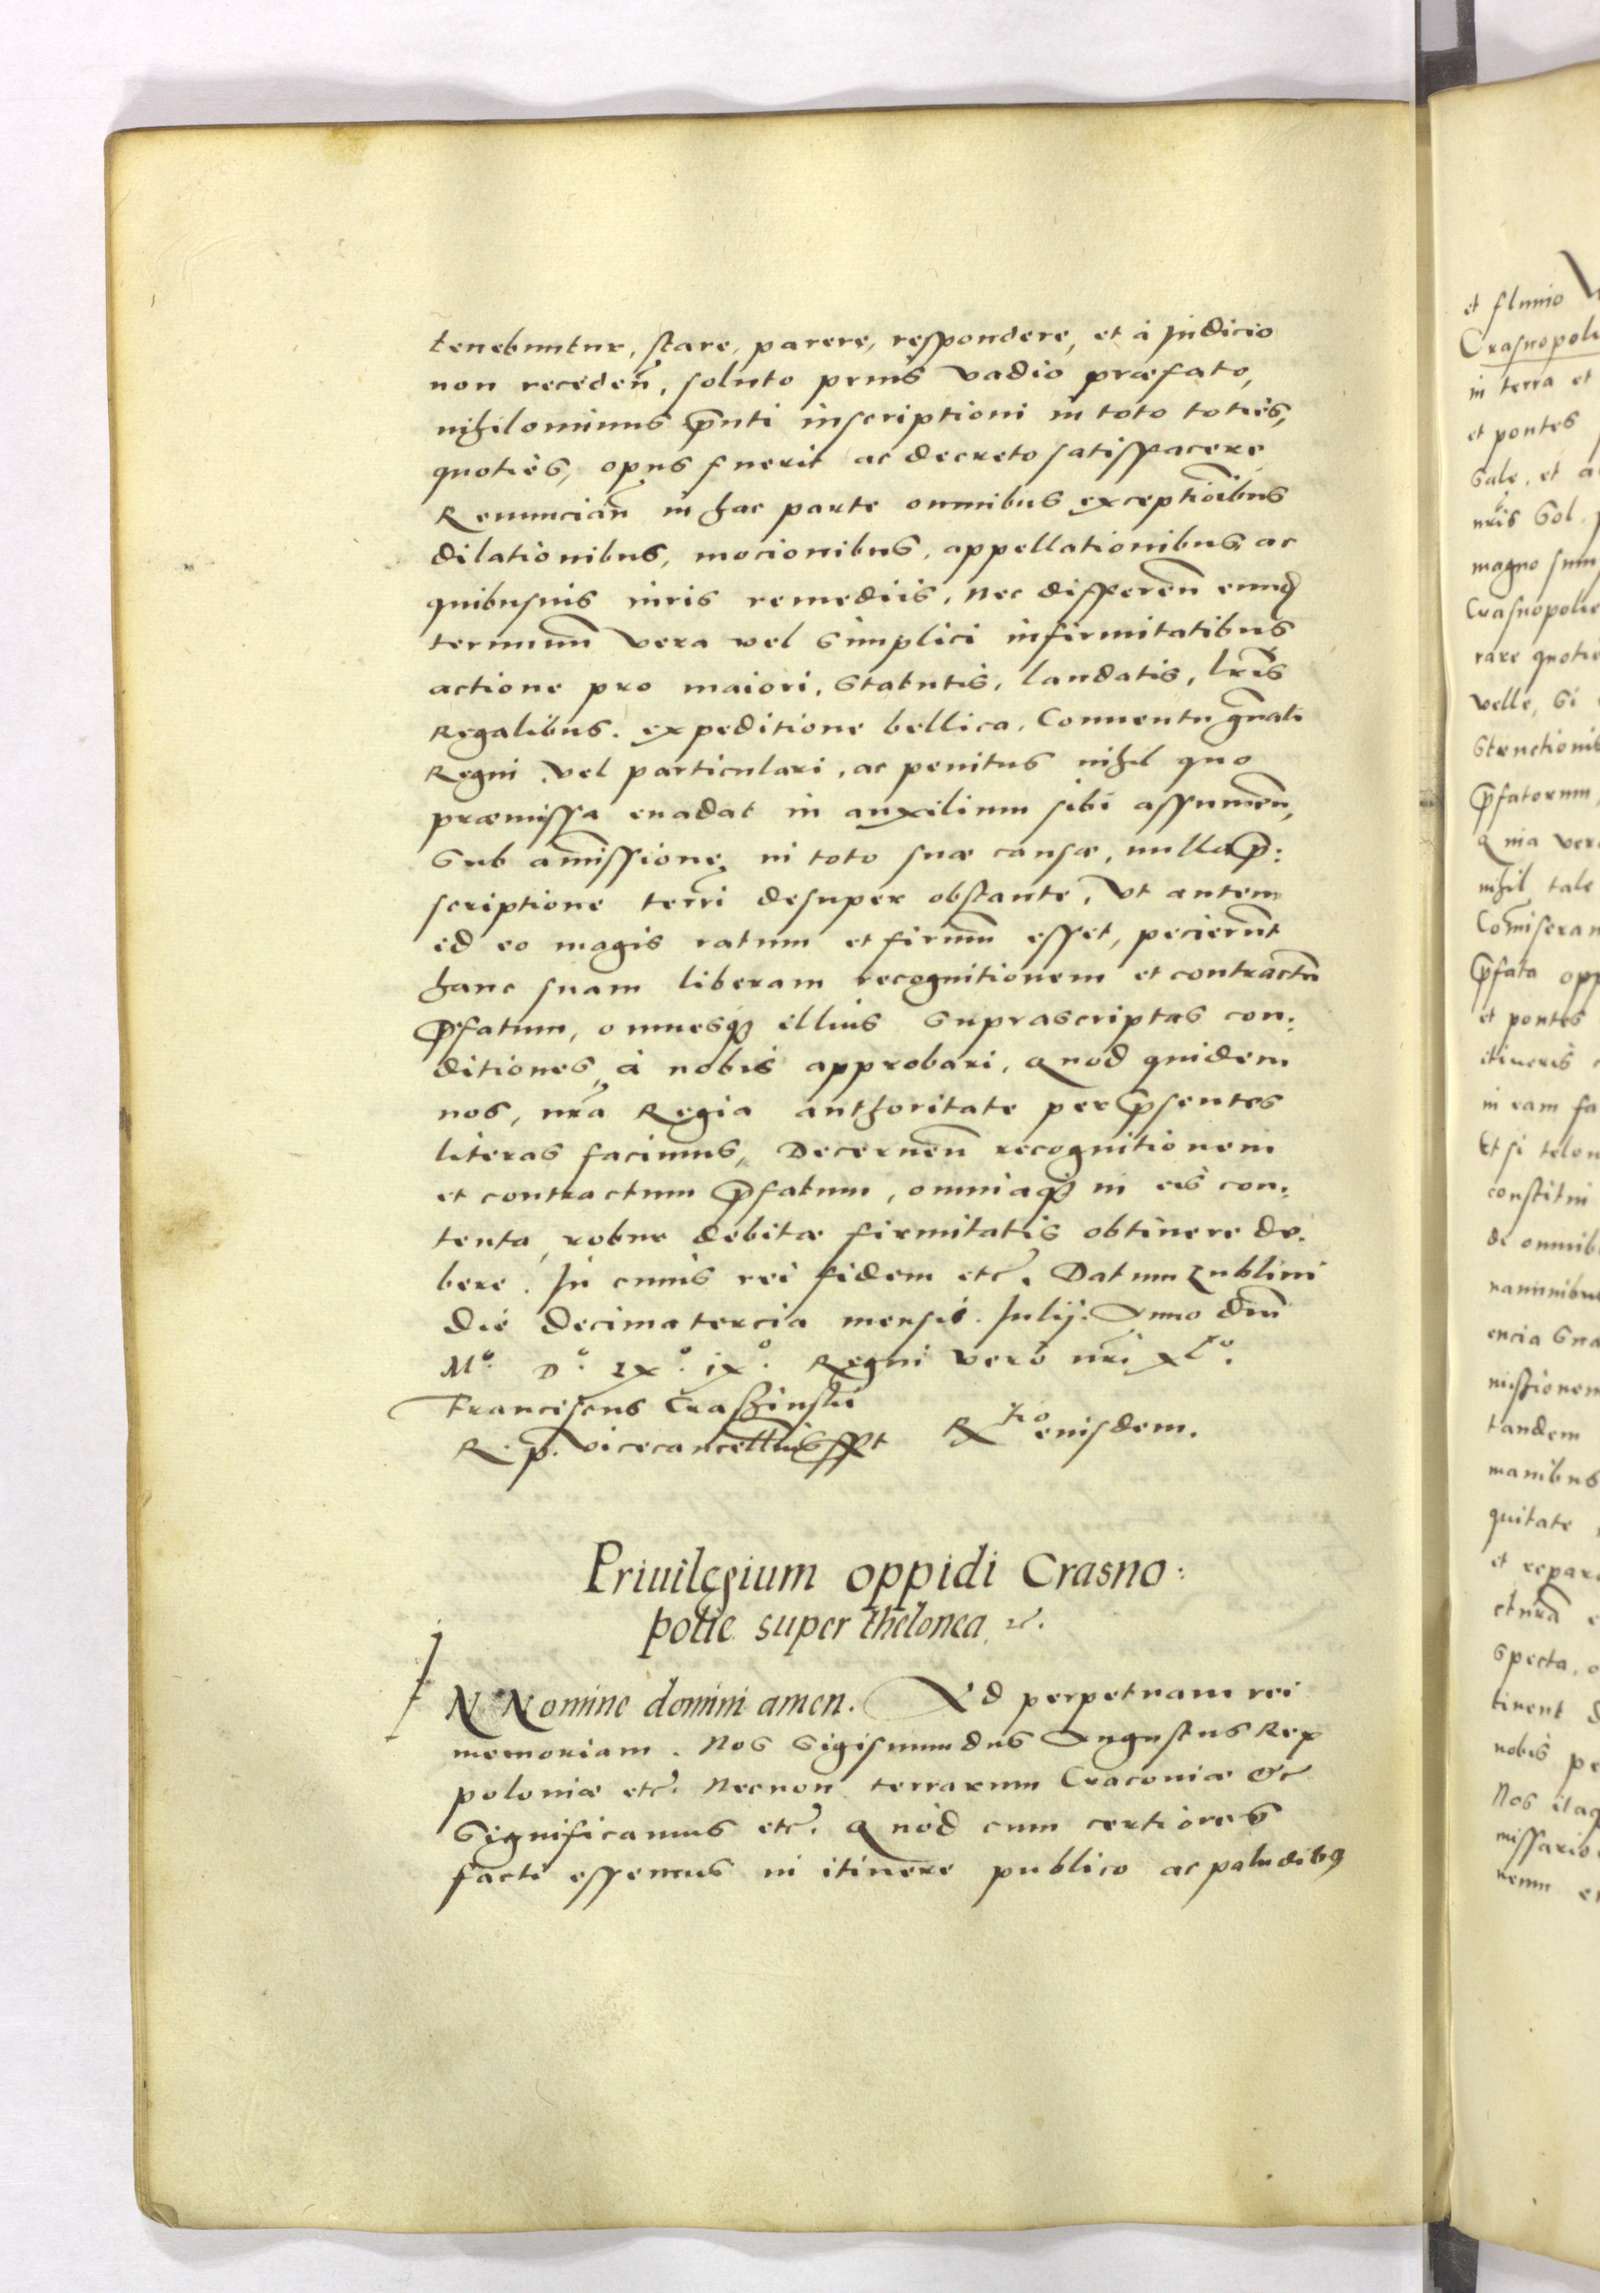 tenebuntur, stare, parere, respondere, et à Judicio
non receden̄, soluto prius vadio præfato,
nihilominus p̄nti inscriptioni in toto toties,
quoties, opus fuerit ac decreto satisfacere
Renuncian̄ in hac parte omnibus exceptioībus
dilationibus, mocionibus, appellationibus, ac
quibusuis iuris remediis, nec differen̄ eund
terminū vera vel simplici infirmitatibus
actione pro maiori, statutis, laudatis, lr̄is
Regalibus. expeditione bellica. Conuentu gn̄ali
Regni vel particulari, ac penitus nihil quo
præmissa euadat in auxilium sibi assumen̄,
sub amissione, in toto suæ causæ, nulla p̄:
scriptione terrī desuper obstante. Vt autem
id eo magis ratum et firmū esset, pecierūt
hanc suam liberam recognitionem et contractū
p̄fatum, omnesq; illius suprascriptas con:
ditiones, à nobis approbari, quod quidem
nos, nr̄a Regia authoritate per p̄sentes
literas facimus, Decernen̄ recognitionem
et contractum p̄fatum, omniaq; in eis con:
tenta, robur debitæ firmitatis obtinere de:
bere. In cuius rei fidem etc̄. Datum Lublini
die decima tercia mensis. Julij. Anno dn̄i
Mº. Dº. LXº. ixº. Regni vero nr̄i xlº.
Franciscus Crassinskii
R. p. vicecancellarius sspt Rtio eiusdem.
Priuilegium oppidi Crasno:
polie super thelonea. etc.
IN Nomine domini amen. Ad perpetuam rei
memoriam. Nos Sigismundus Augustus Rex
poloniæ etc̄. Necnon terrarum Cracouiæ &c
Significamus etc̄. Quod cum certiores
facti essemus in itinere publico ac paludibꝰ
et fluuio
Crasnopoli
in terra et
et pontes
sale, et a
nr̄is Sol.
magno sum
Crasnopolie
rare quotie
velle, si
structionib
p̄fatorum,
Quia vero
nihil tale
Com̄iseram
p̄fata opp
et pontes
itineris
in eam fa
Et si telon
constitui
de omnib
encia
missionem
tandem
manibus
quitate
et repar
specta, o
tinent
nobis pe
Nos itaq
missario